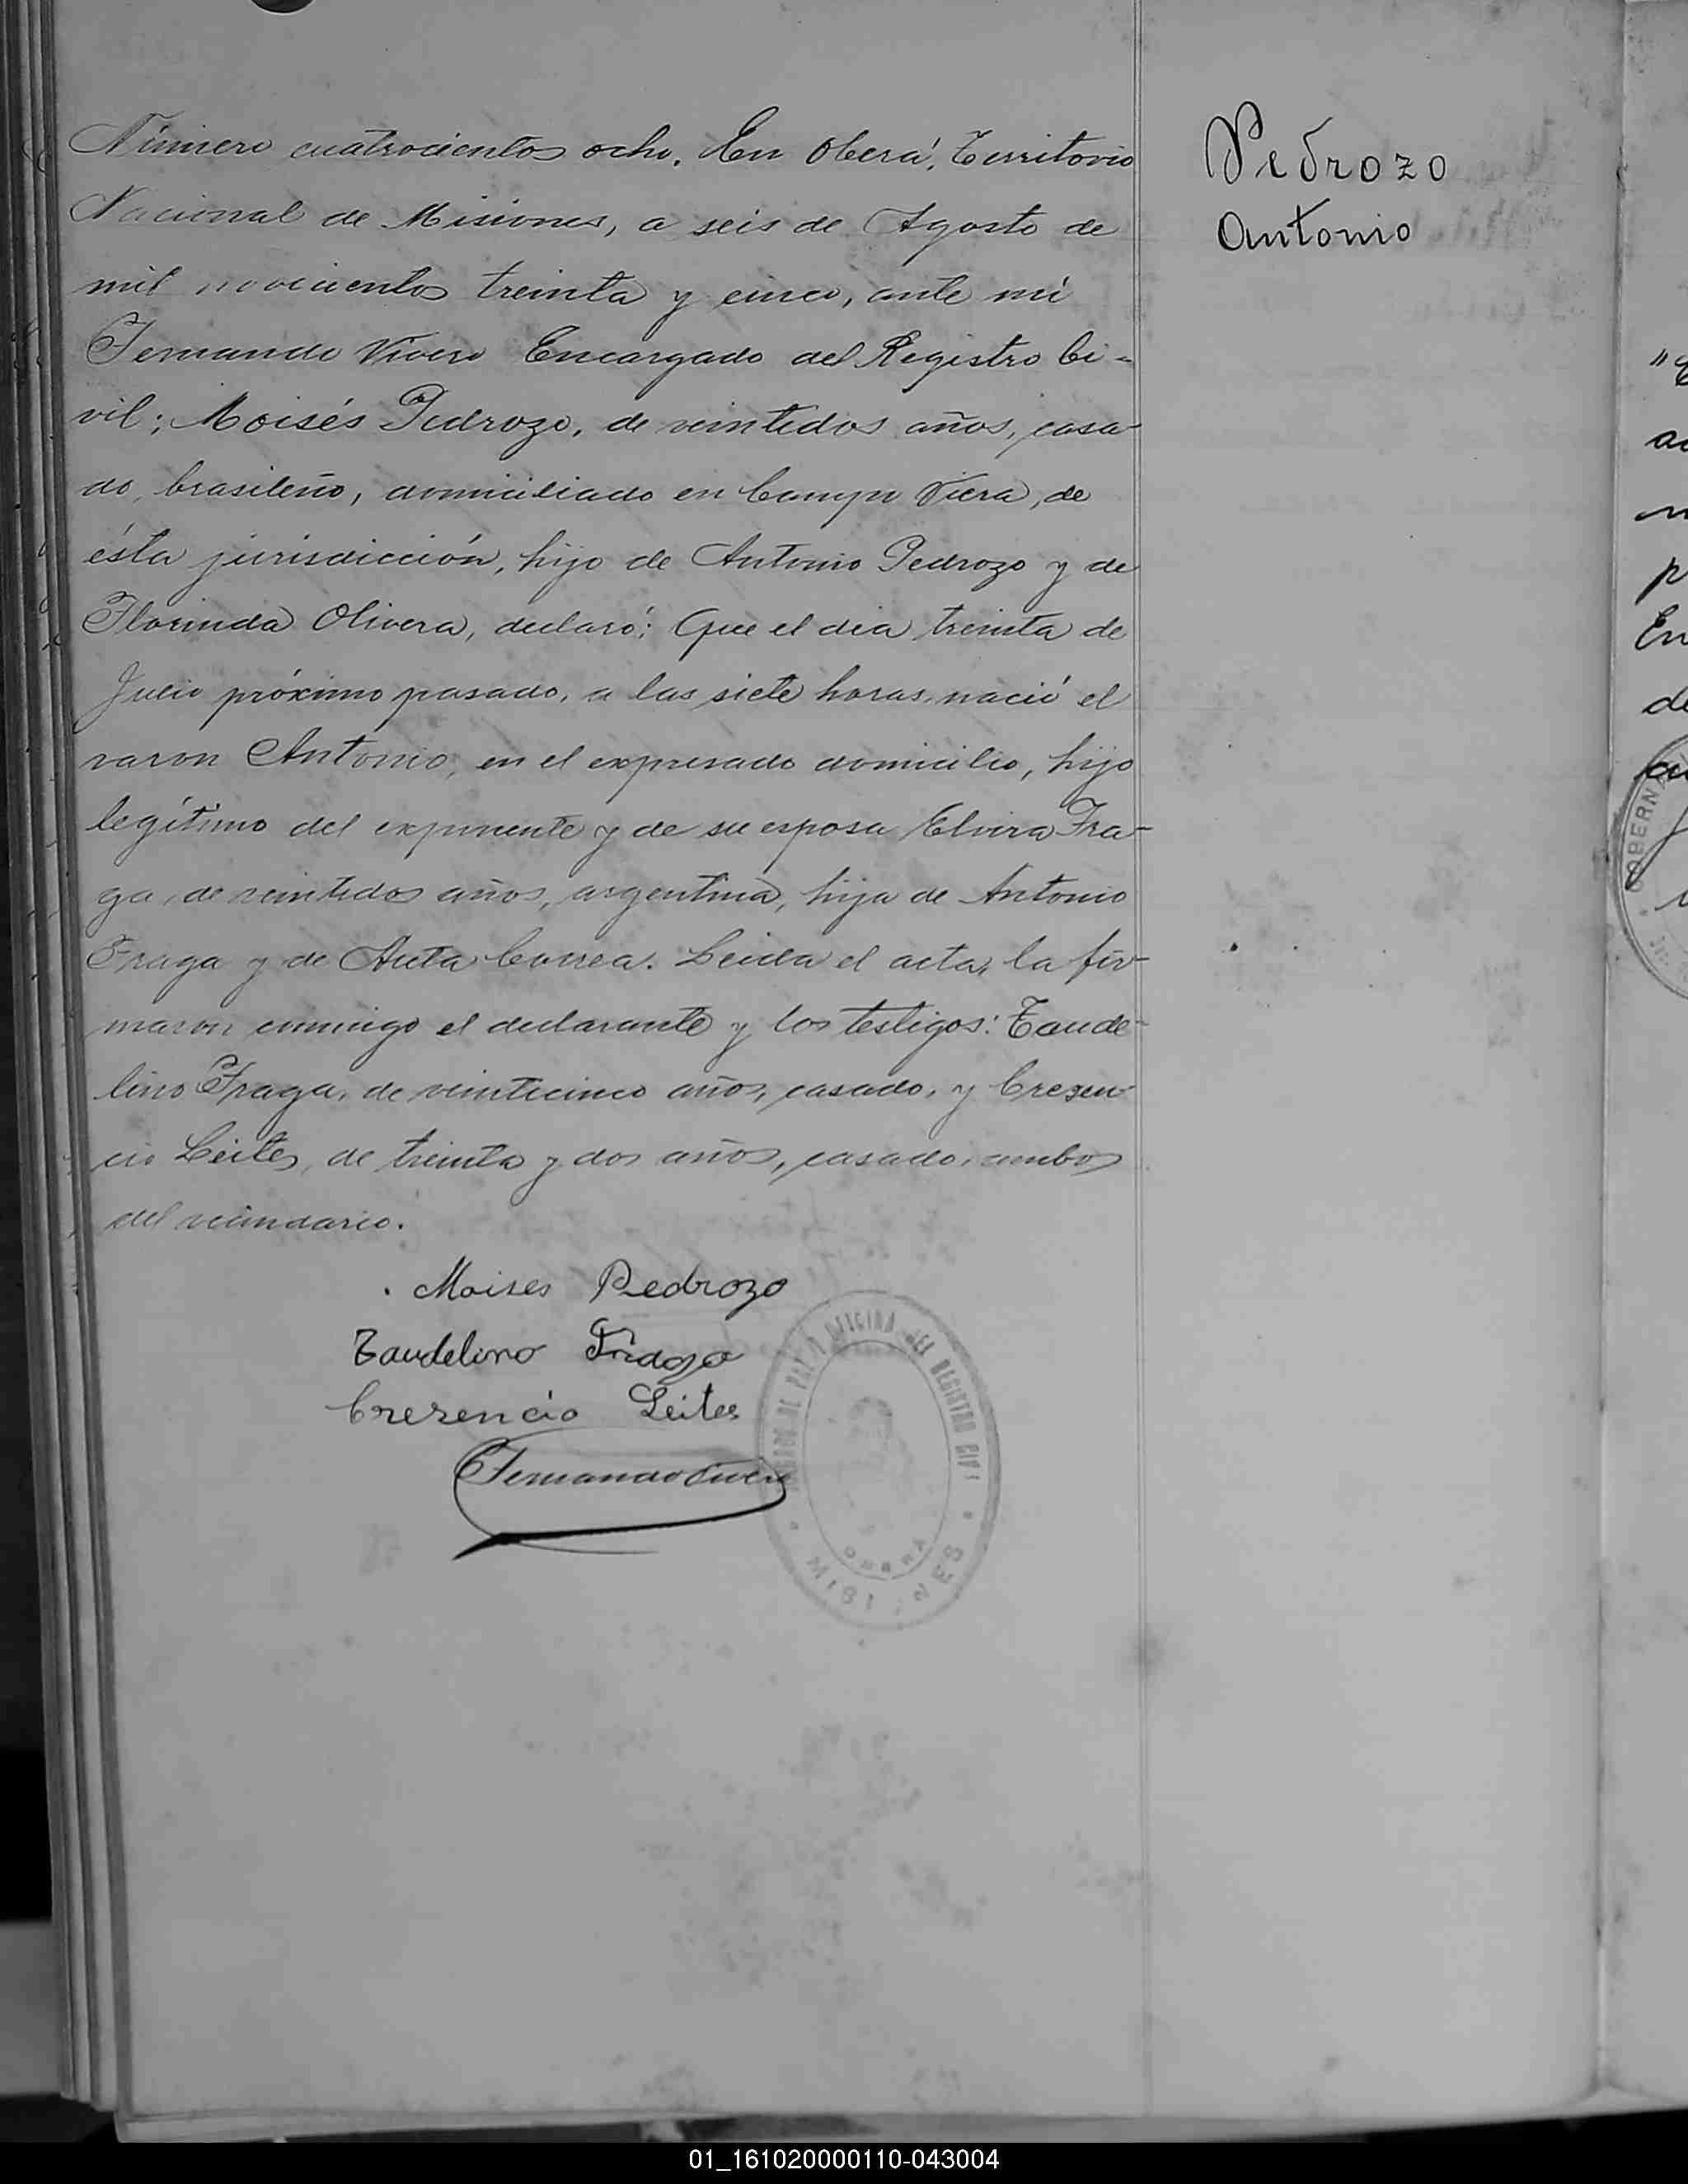 Número cuatrocientos ocho. En Oberá, Territorio
Nacional de Misiones, a seis de Agosto de
mil novecientos treinta y cinco, ante mí
Fernando Vivero Encargado del Registro Ci-
vil; Moisés Pedrozo, de veintidos años, casa-
do, brasileño, domiciliado en Campo Viera, de
ésta jurisdicción, hijo de Antonio Pedrozo y de
Florinda Olivera, declaró: Que el dia treinta de
Julio próximo pasado, a las siete horas, nació el
varon Antonio, en el expresado domicilio, hijo
legítimo del exponente y de su esposa Elvira Fra-
ga, de veintidos años, argentina, hija de Antonio
Fraga y de Auta Correa. Leida el acta, la fir-
maron conmigo el declarante y los testigos: Taude-
lino Fraga, de veinticinco años, casado, y Crezen-
cio Leites, de treinta y dos años, casado, ambos
del vecindario.
Moises Pedrozo
Taudelino Fraga
Crezencio Leites
Fernando Vivero
DE PAZ OFICINA DEL REGISTRO CIVI
OBERA
MISIONES
Pedrozo
Antonio
"E
p
En
de
GOBERNA
01_161020000110-043004